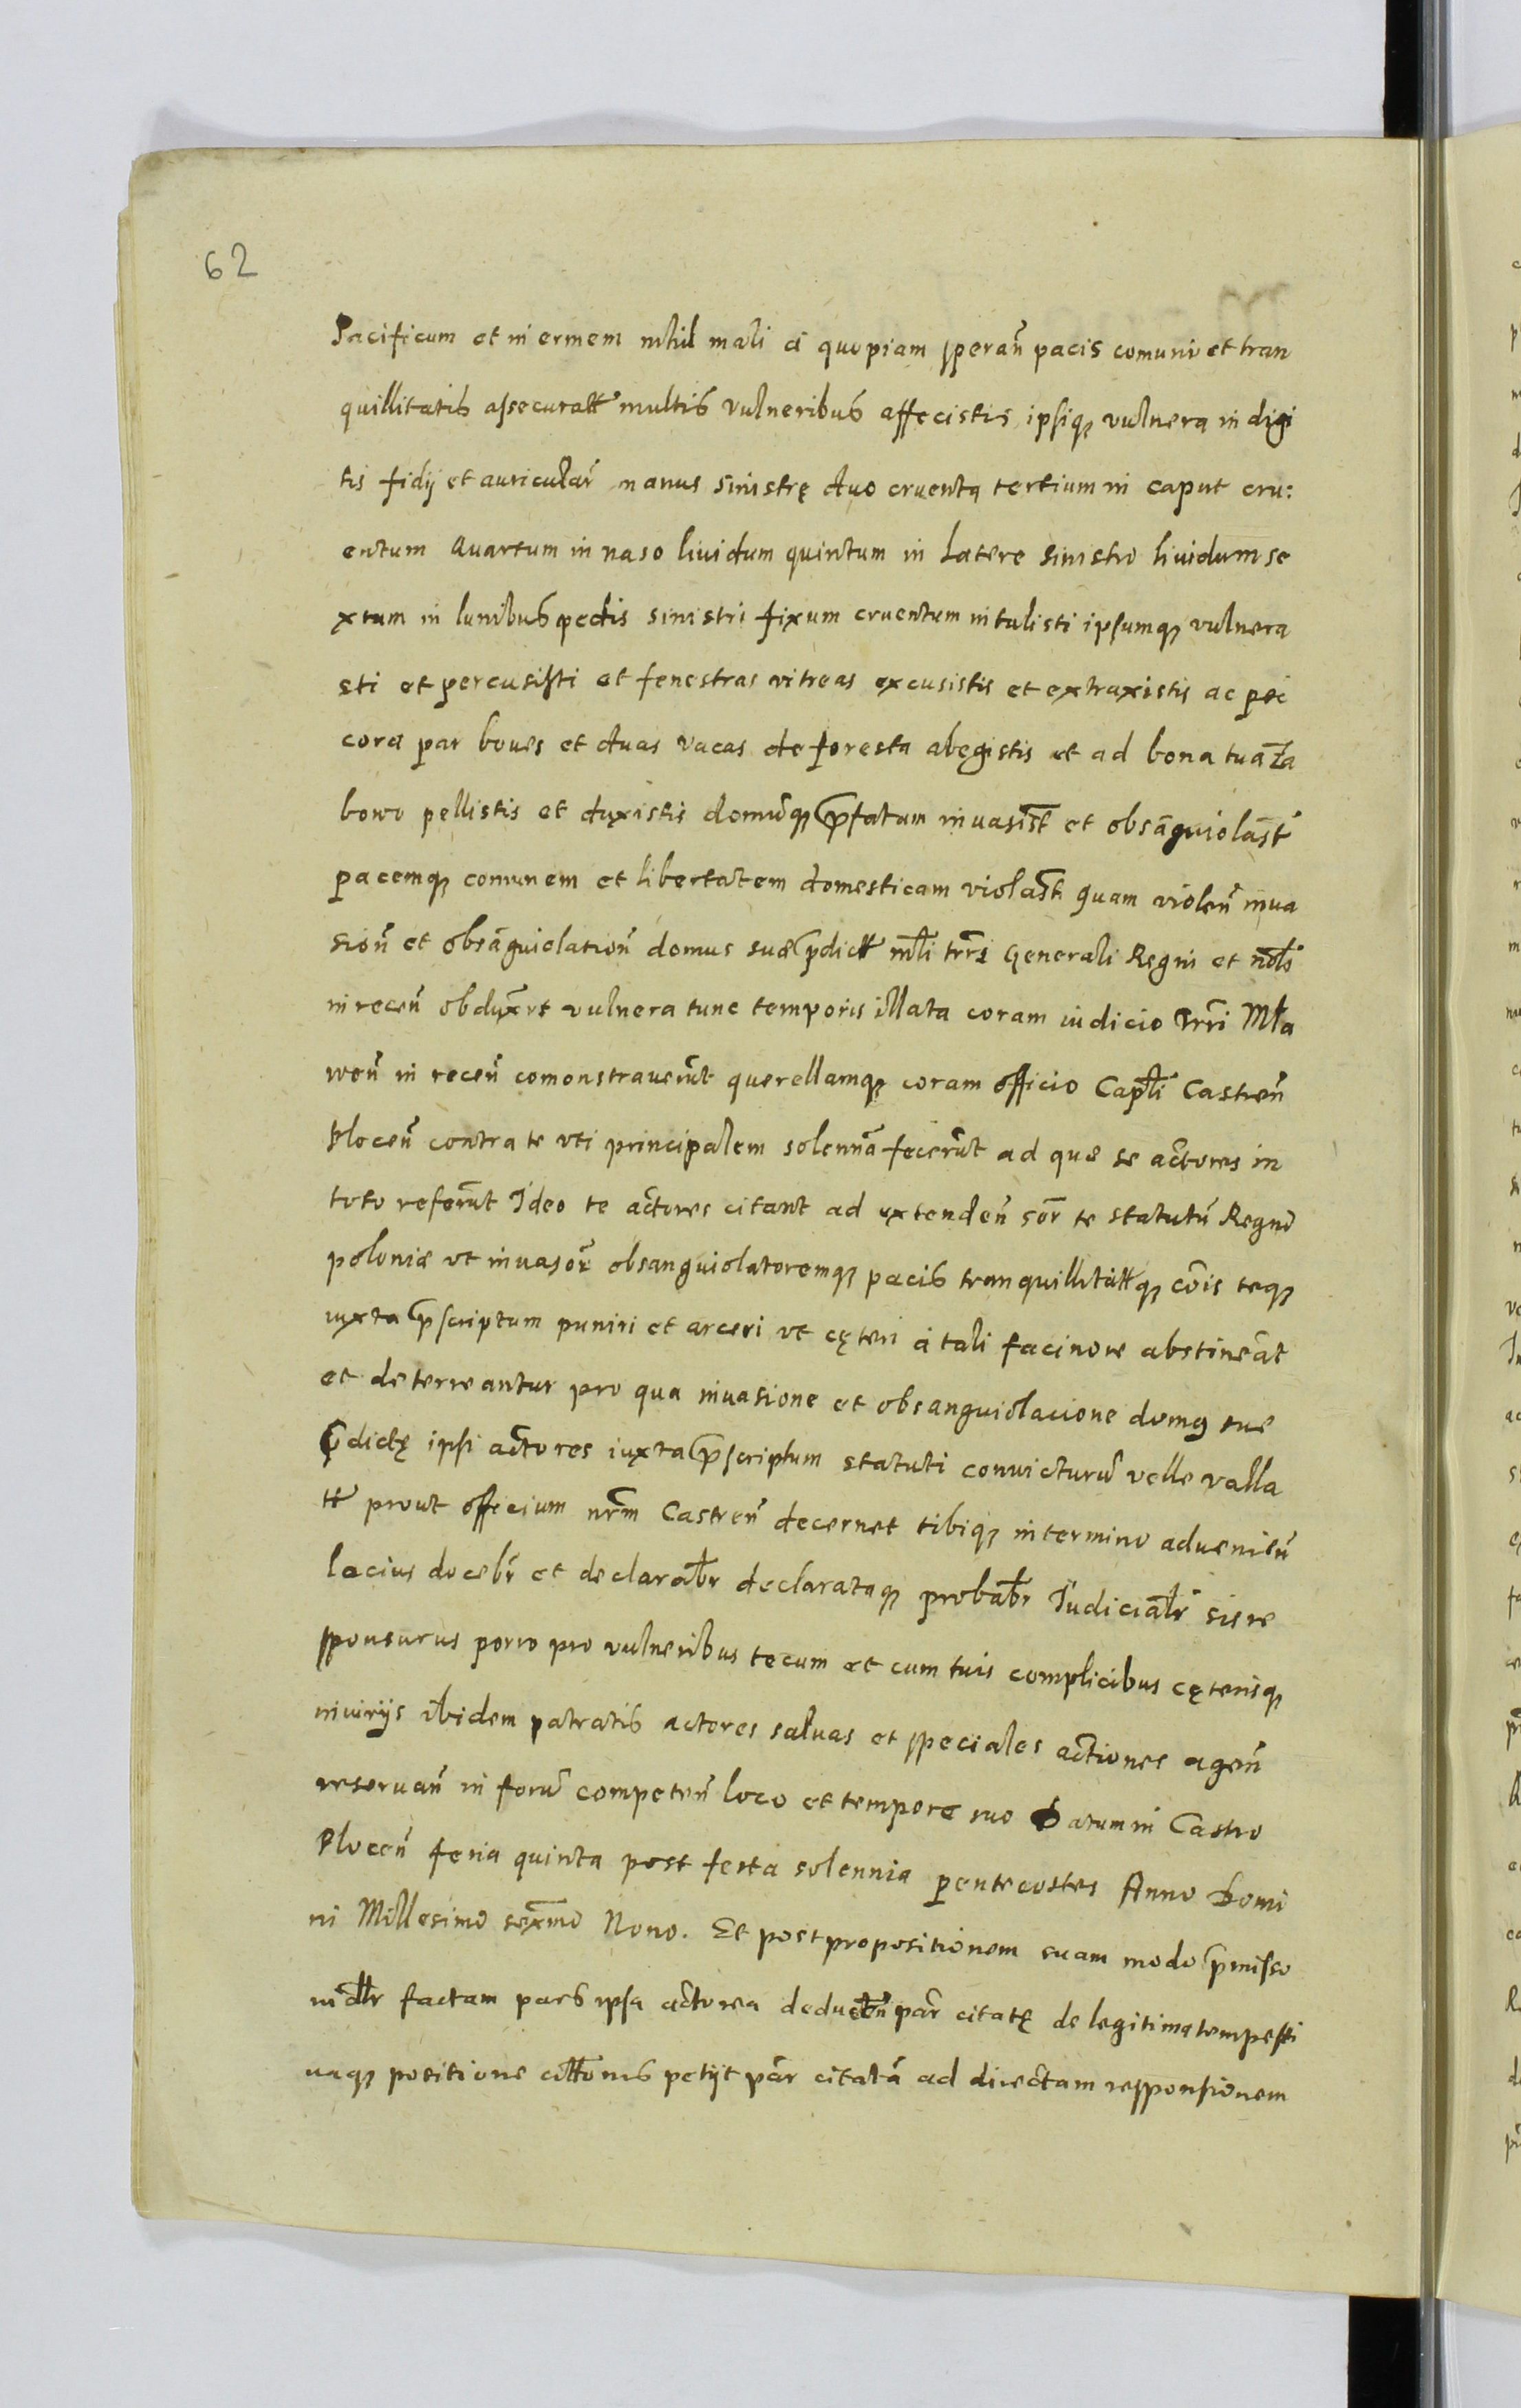 62
Pacificum et in ermem nihil mali à quopiam sperañ pacis comunis et tran
quillitatis assecuratt multis vulneribus affecistis ipsiq₃ vulnera in digi
tis fidij et auricular̃ manus sinistrę duo cruenta tertium in caput cru:
entum Quartum in naso liuidum quintum in Latere sinistro liuidum se
xtum in lumbus pedis sinistri fixum cruentum intulisti ipsumq₃ vulnera
sti et percusisti et fenestras vitreas excusistis et extraxistis ac pec
cora par boues et duas vacas de foresta abegistis et ad bona tua Za
bowo pellistis et duxistis domũq₃ p̃fatam inuasist̃ et obsãguiolast̃
pacemq₃ comunem et libertatem domesticam violast̃ quam violeñ inua
sioñ et obsãguiolatioñ domus suæ p̃dict m̃li tr̃ri Generali Regni et nobl̃
in receñ obdux̃rt vulnera tunc temporis illata coram iudicio Tr̃ri Mła
weñ in receñ comonstrauerũt querellamq₃ coram officio Capl̃i Castreñ
Ploceñ contra te vti principalem solennã fecerũt ad quæ se actores in
toto referũt Ideo te actores citant ad extendeñ sõr te statutũ Regni
poloniæ vt inuasor̃ obsanguiolatoremq₃ pacis tranquillitatt q₃ cõis teq₃
iuxta p̃scriptum puniri et arceri vt cęteri à tali facinore abstineãt
et deterreantur pro qua inuasione et obsanguiolacione domus sue
p̃dictę ipsi actores iuxta p̃scriptum statuti conuicturũ velle valla
tt prout officium nr̃m Castreñ decernet tibiq₃ in termino aduenieñ
lacius docebr̃ et declarabr̃ declarataq₃ probabr̃ Iudicialr̃ sis re
sponsurus porro pro vulneribus tecum et cum tuis complicibus cęterisq₃
iniurijs ibidem patratis actores saluas et speciales actiones ageñ
reseruañ in forũ competeñ loco et tempore suo Datum in Castro
Ploceñ feria quinta post festa solennia pentecostes Anno Domi
ni Millesimo sexm̃o Nono. Et post propositionem suam modo p̃misso
iudl̃r factam pars ipsa actorea deducteñ par̃ citatę de legitima tempesti
uaq₃ positione citt̃onis petijt par̃ citatã ad directam responsionem